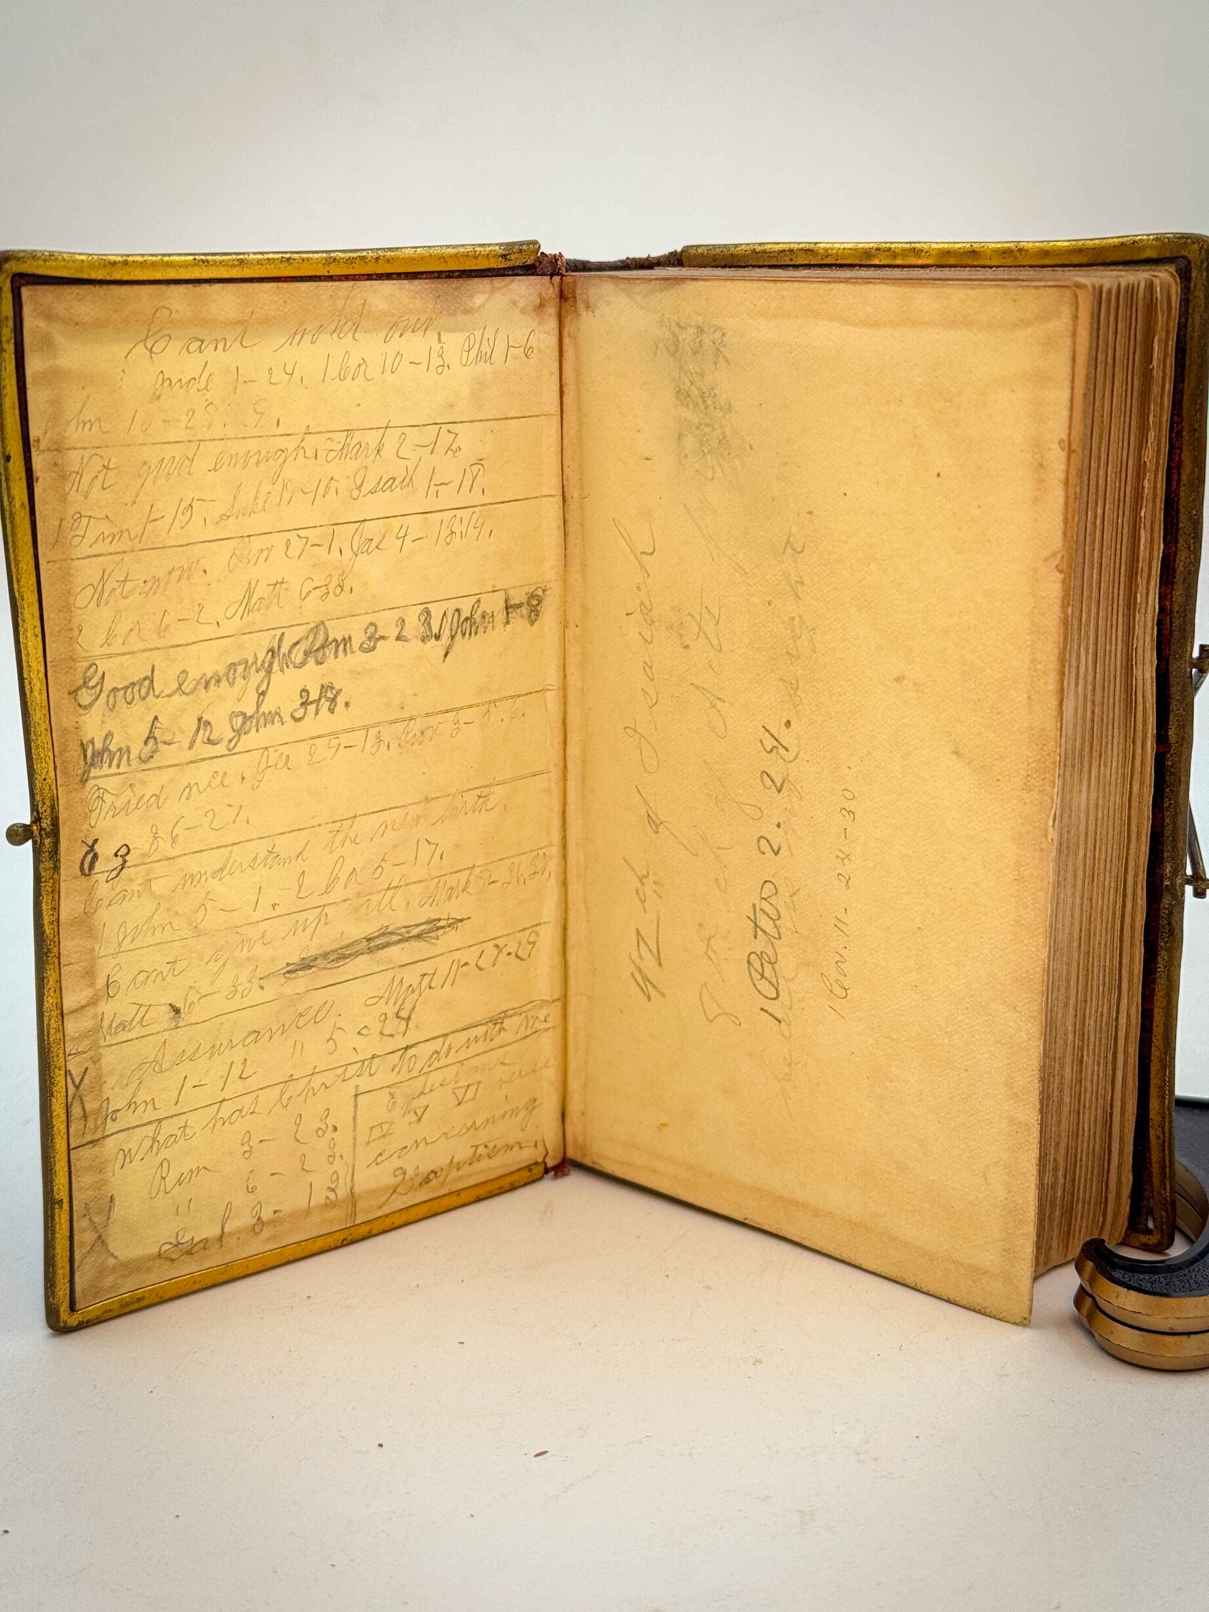 Cant hold out
Jude 1-24. 1 Cor 10-13. Phil 1-6
John 10-28.
Not good enough. Mark 2-17.
1 Tim 1-15. Luke 19-10. Isaih 1-18.
Not now. Prov 27-1. Jas 4-13.14.
2 Cor 6-2. Matt 6-33.
Good enough Rom 3-23 1 John 1-8
John 5-12 John 3-18.
Tried
36-27.
Cant understand the new birth.
1 John 5-1. 2 Cor 5-17.
Cant give up all. Mark
Matt 6-33.
Assurance. Matt 11-28-29
John 1-12 " 5-24.
What has Christ to do with me
Rom 3-23.
" 6-23.
Gal. 3-13
IV V VI
concerning
Baptism.
42 ch of Isaiah
ch of Acts
1 Peter 2. 24.
1 Cor. 11. 28-30